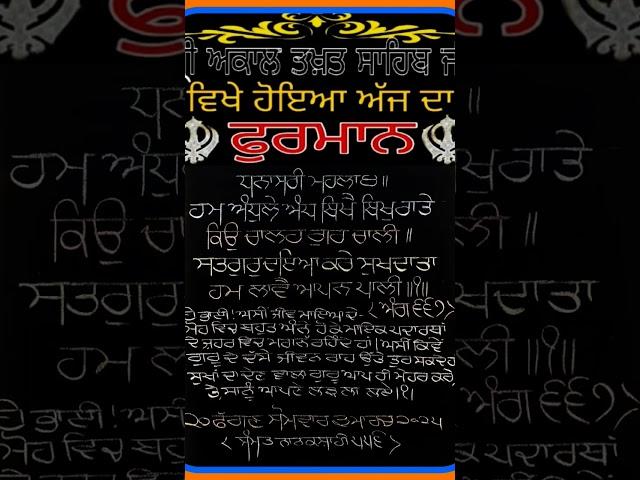 ਸ੍ਰੀ ਅਕਾਲ ਤਖ਼ਤ ਸਾਹਿਬ ਜੀ
ਵਿਖੇ ਹੋਇਆ ਅੱਜ ਦਾ
ਫੁਰਮਾਨ
ਧਨਾਸਰੀ ਮਹਲਾ ੪॥
ਹਮ ਅੰਧੁਲੇ ਅੰਧ ਬਿਖੈ ਬਿਖੁ ਰਾਤੇ
ਕਿਉ ਚਾਲਹ ਗੁਰ ਚਾਲੀ॥
ਸਤਗੁਰੁ ਦਇਆ ਕਰੇ ਸੁਖਦਾਤਾ
ਹਮ ਲਾਵੈ ਆਪਨ ਪਾਲੀ॥੧॥
(ਅੰਗ ੬੬੭)
ਹੇ ਭਾਈ! ਅਸੀਂ ਜੀਵ ਮਾਇਆ ਦੇ-
ਮੋਹ ਵਿਚ ਬਹੁਤ ਅੰਨ੍ਹੇ ਹੋ ਕੇ ਮਾਇਕ ਪਦਾਰਥਾਂ
ਦੇ ਜ਼ਹਰ ਵਿਚ ਮਗਨ ਰਹਿੰਦੇ ਹਾਂ। ਅਸੀਂ ਕਿਵੇਂ
ਗੁਰੂ ਦੇ ਦੱਸੇ ਜੀਵਨ ਰਾਹ ਉੱਤੇ ਤੁਰ ਸਕਦੇ ਹਾਂ
ਸੁਖਾਂ ਦਾ ਦੇਣ ਵਾਲਾ ਗੁਰੂ ਆਪ ਹੀ ਮੇਹਰ ਕਰੇ,
ਤੇ ਸਾਨੂੰ ਆਪਣੇ ਲੜ ਲਾ ਲਏ।੧।
੨੦ ਫੱਗਣ ਸੋਮਵਾਰ ੩ ਮਾਰਚ ੨੦੨੫
(ਸੰਮਤ ਨਾਨਕਸ਼ਾਹੀ ੫੫੬)